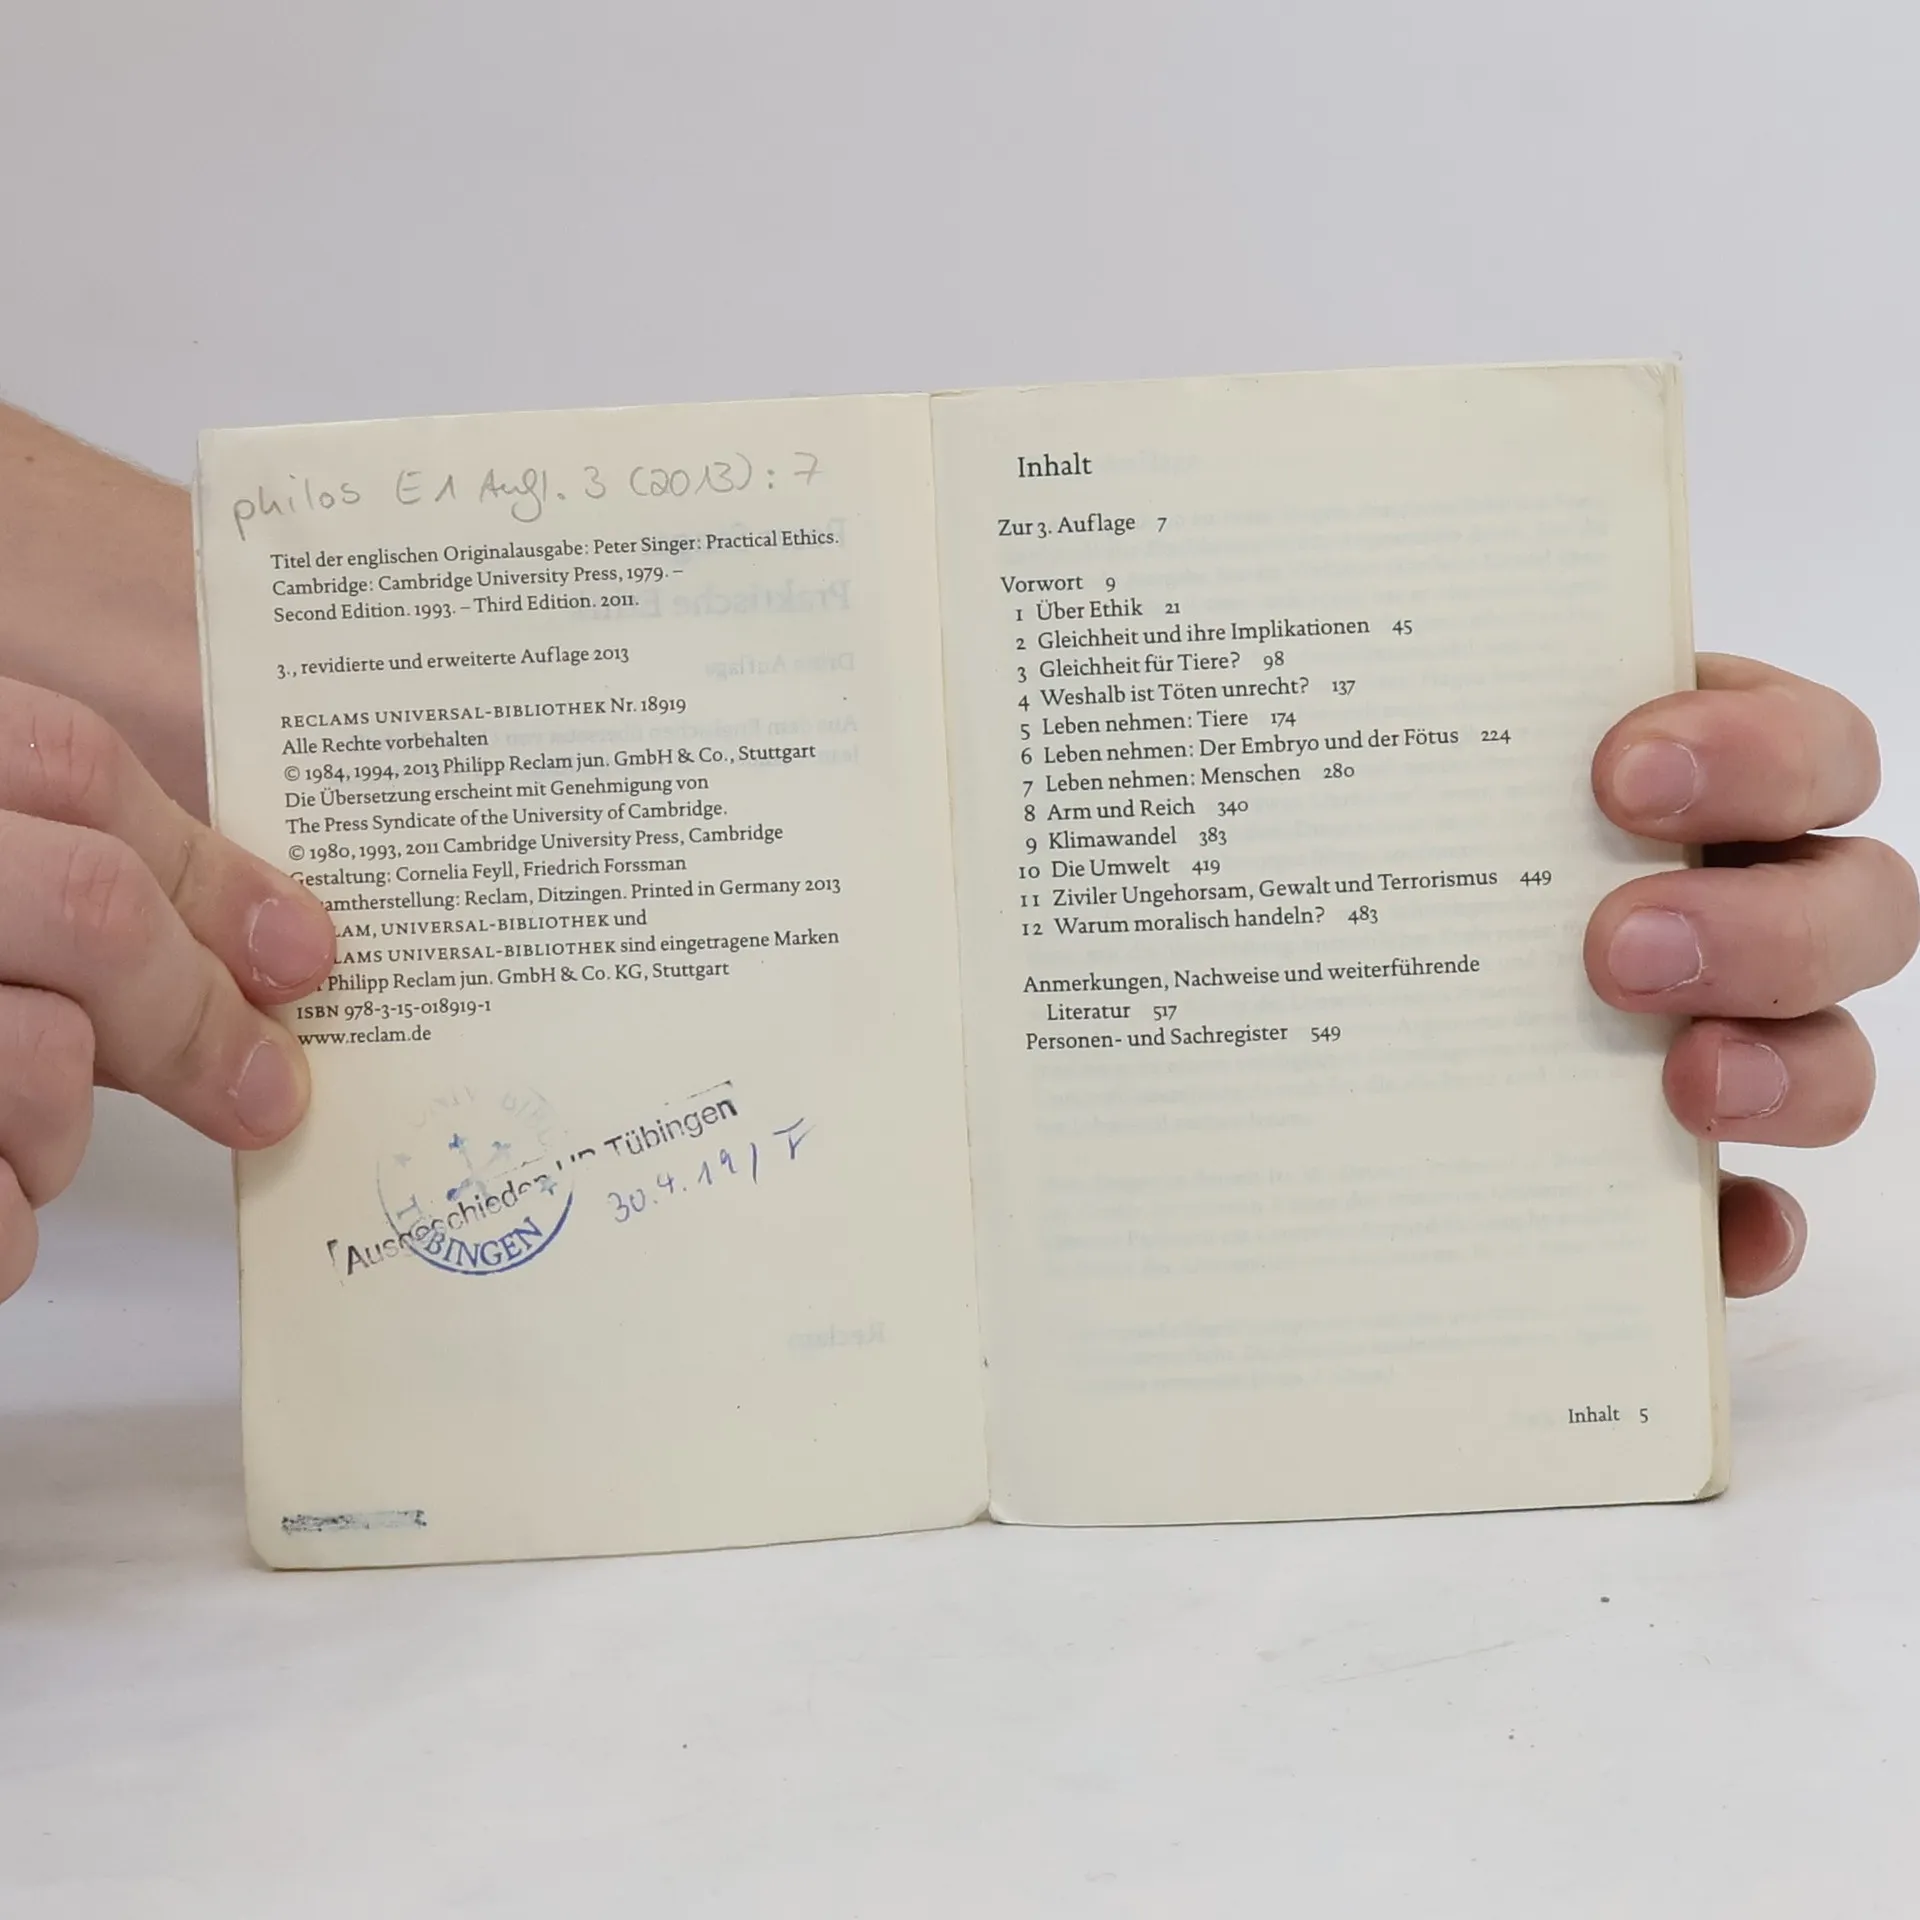 philos E1 Aufl. 3 (2013): 7
Titel der englischen Originalausgabe: Peter Singer: Practical Ethics.
Cambridge: Cambridge University Press, 1979. –
Second Edition. 1993. – Third Edition. 2011.
3., revidierte und erweiterte Auflage 2013
RECLAMS UNIVERSAL-BIBLIOTHEK Nr. 18919
Alle Rechte vorbehalten
© 1984, 1994, 2013 Philipp Reclam jun. GmbH & Co., Stuttgart
Die Übersetzung erscheint mit Genehmigung von
The Press Syndicate of the University of Cambridge.
© 1980, 1993, 2011 Cambridge University Press, Cambridge
Gestaltung: Cornelia Feyll, Friedrich Forssman
amtherstellung: Reclam, Ditzingen. Printed in Germany 2013
LAM, UNIVERSAL-BIBLIOTHEK und
LAMS UNIVERSAL-BIBLIOTHEK sind eingetragene Marken
Philipp Reclam jun. GmbH & Co. KG, Stuttgart
ISBN 978-3-15-018919-1
www.reclam.de
Ausgeschieden UB Tübingen
30.4.19/
TÜBINGEN
Inhalt
Zur 3. Auflage 7
Vorwort 9
1 Über Ethik 21
2 Gleichheit und ihre Implikationen 45
3 Gleichheit für Tiere? 98
4 Weshalb ist Töten unrecht? 137
5 Leben nehmen: Tiere 174
6 Leben nehmen: Der Embryo und der Fötus 224
7 Leben nehmen: Menschen 280
8 Arm und Reich 340
9 Klimawandel 383
10 Die Umwelt 419
11 Ziviler Ungehorsam, Gewalt und Terrorismus 449
12 Warum moralisch handeln? 483
Anmerkungen, Nachweise und weiterführende
Literatur 517
Personen- und Sachregister 549
Inhalt 5